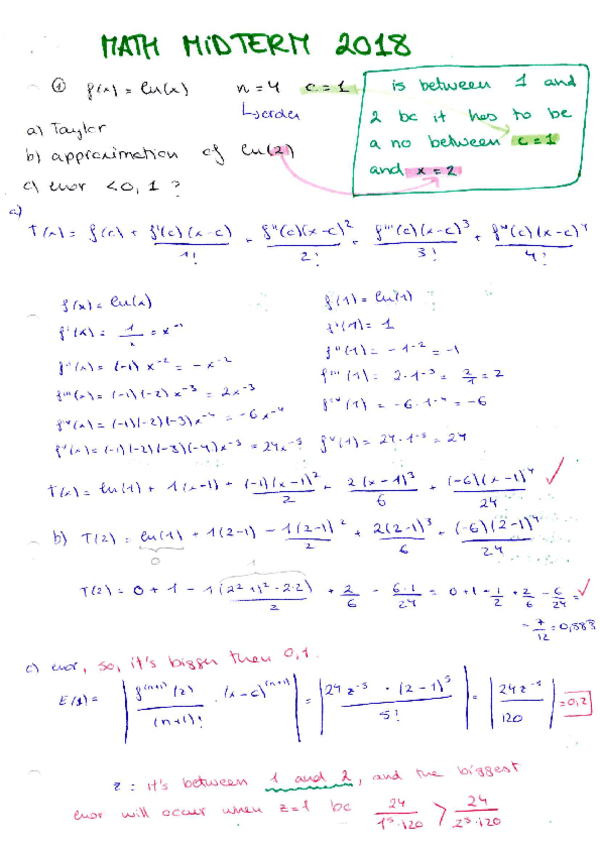 MATH MIDTERM 2018
① f(x) = ln(x) n = 4 c = 1
↳ order
is between 1 and
2 bc it has to be
a no between c = 1
and x = 2
a) Taylor
b) approximation of ln(2)
c) error < 0,1 ?
a)
T(x) = f(c) + f'(c)(x-c)/1! + f''(c)(x-c)²/2! + f'''(c)(x-c)³/3! + f⁗(c)(x-c)⁴/4!
f(x) = ln(x) f(1) = ln(1)
f'(x) = 1/x = x⁻¹ f'(1) = 1
f''(x) = (-1) x⁻² = -x⁻² f''(1) = -1⁻² = -1
f'''(x) = (-1)(-2) x⁻³ = 2x⁻³ f'''(1) = 2·1⁻³ = 2/1 = 2
(-1)(-2)(-3)x⁻⁴ = -6x⁻⁴ = -6·1⁻⁴ = -6
(-1)(-2)(-3)(-4)x⁻⁵ = 24x⁻⁵ = 24·1⁻⁵ = 24
T(x) = ln(1) + 1(x-1) + (-1)(x-1)²/2 + 2(x-1)³/6 + (-6)(x-1)⁴/24 ✓
b) T(2) = ln(1) + 1(2-1) - 1(2-1)²/2 + 2(2-1)³/6 + (-6)(2-1)⁴/24
0
T(2) = 0 + 1 - 1(2²+1²-2·2)/2 + 2/6 - 6·1/24 = 0+1-1/2+2/6-6/24 = ✓
7/12 = 0,583
c) error, so, it's bigger then 0,1.
= | f⁽ⁿ⁺¹⁾(z)/(n+1)! · (x-c)⁽ⁿ⁺¹⁾ | = | 24z⁻⁵ · (2-1)⁵/5! | = | 24z⁻⁵/120 | = 0,2
z : it's between 1 and 2, and the biggest
error will occur when z=1 bc 24/1⁵·120 > 24/2⁵·120